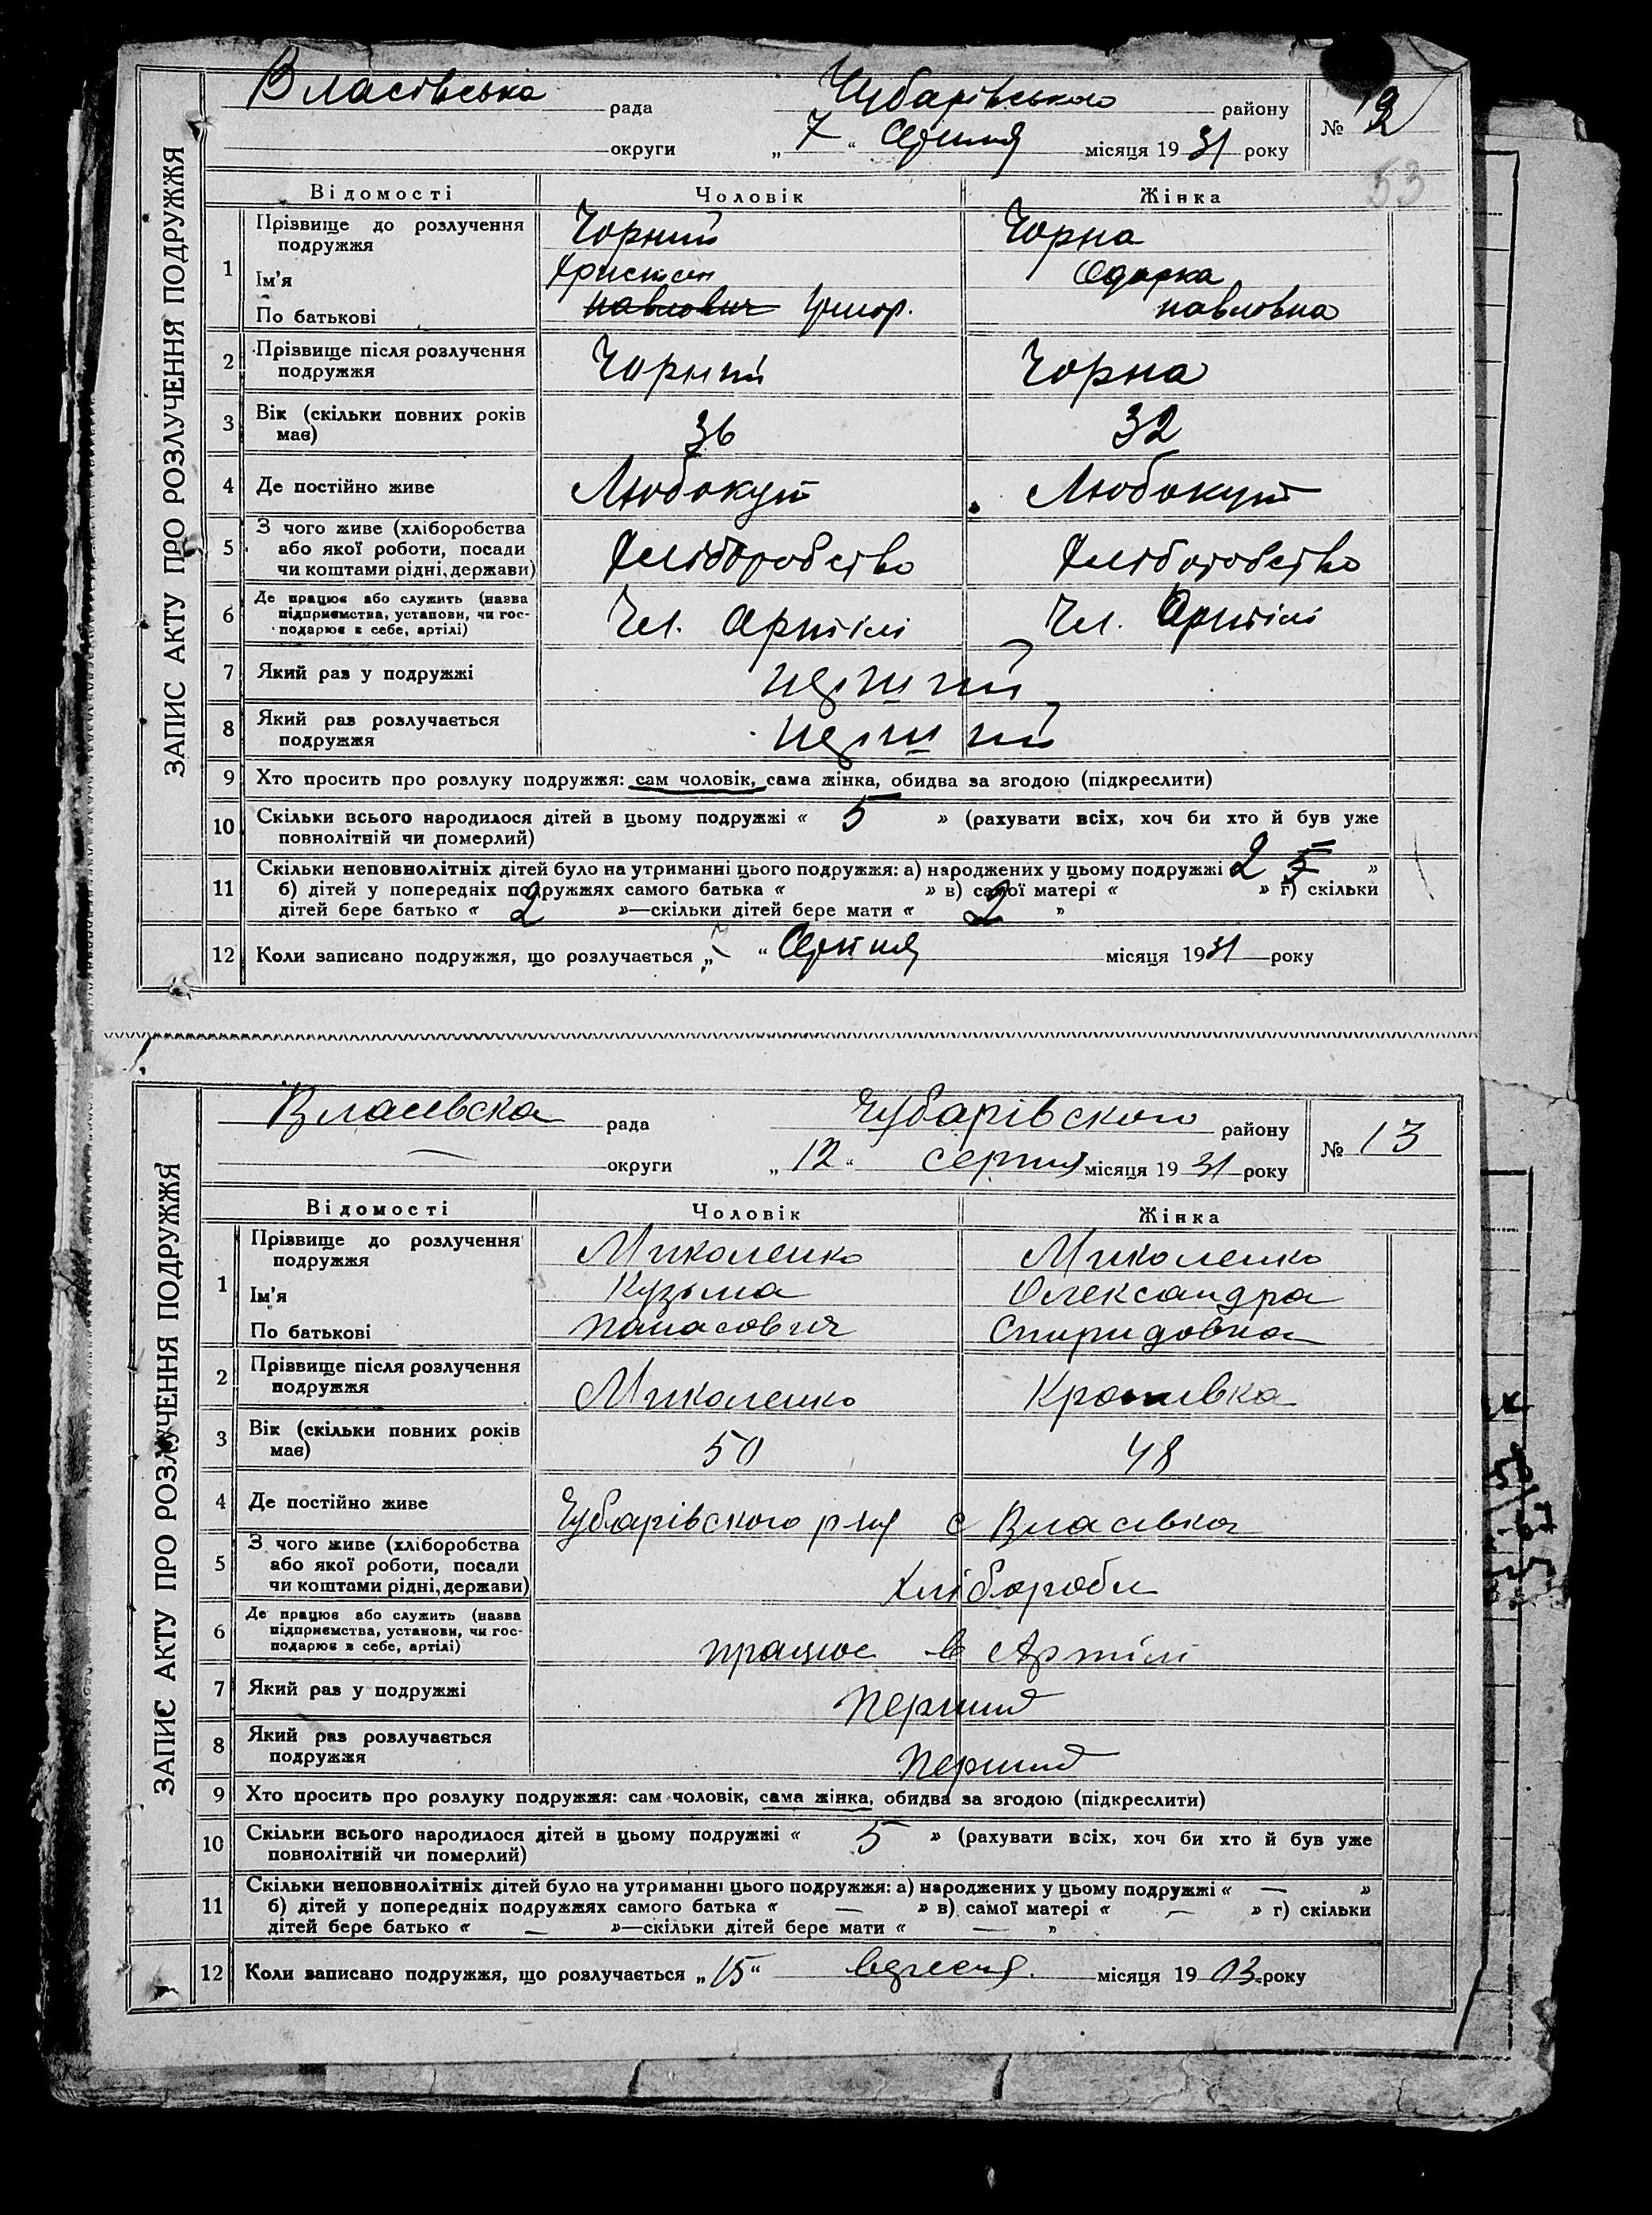 ЗАПИС АКТУ ПРО РОЗЛУЧЕННЯ ПОДРУЖЖЯ
Власівська рада Чубарівського району № 12
округи „ 7 “ Серпня місяця 19 31 року
53
Відомості Чоловік Жінка
1 Прізвище до розлучення подружжя Чорний Чорна
Ім'я Одарка
По батькові павлович павловна
2 Прізвище після розлучення подружжя Чорний Чорна
3 Вік (скільки повних років має) 36 32
4 Де постійно живе Любокут Любокут
5 З чого живе (хліборобства або якої роботи, посади чи коштами рідні, держави) Хліборобство Хліборобство
6 Де працює або служить (назва підприємства, установи, чи господарює в себе, артілі) Чл. Артілі Чл. Артілі
7 Який раз у подружжі перший
8 Який раз розлучається подружжя перший
9 Хто просить про розлуку подружжя: сам чоловік, сама жінка, обидва за згодою (підкреслити)
10 Скільки всього народилося дітей в цьому подружжі « 5 » (рахувати всіх, хоч би хто й був уже
повнолітній чи померлий)
11 Скільки неповнолітніх дітей було на утриманні цього подружжя: а) народжених у цьому подружжі 2 5 »
б) дітей у попередніх подружжях самого батька « » в) самої матері « » г) скільки
дітей бере батько « 2 »—скільки дітей бере мати « 2 »
12 Коли записано подружжя, що розлучається „ “ Серпня місяця 19 31 року
ЗАПИС АКТУ ПРО РОЗЛУЧЕННЯ ПОДРУЖЖЯ
Власівска рада Чубарівского району № 13
— округи „ 12 “ серпня місяця 19 31 року
Відомості Чоловік Жінка
1 Прізвище до розлучення подружжя Миколенко Миколенко
Ім'я Кузьма Олександра
По батькові Панасович Спиридовна
2 Прізвище після розлучення подружжя Миколенко Кропивка
3 Вік (скільки повних років має) 50 48
4 Де постійно живе Чубарівского р-ну с Власівка
5 З чого живе (хліборобства або якої роботи, посади чи коштами рідні, держави) Хлібороби
6 Де працює або служить (назва підприємства, установи, чи господарює в себе, артілі) працює в Артілі
7 Який раз у подружжі Перший
8 Який раз розлучається подружжя Перший
9 Хто просить про розлуку подружжя: сам чоловік, сама жінка, обидва за згодою (підкреслити)
10 Скільки всього народилося дітей в цьому подружжі « 5 » (рахувати всіх, хоч би хто й був уже
повнолітній чи померлий)
11 Скільки неповнолітніх дітей було на утриманні цього подружжя: а) народжених у цьому подружжі « — »
б) дітей у попередніх подружжях самого батька « — » в) самої матері « — » г) скільки
дітей бере батько « — »—скільки дітей бере мати « — »
12 Коли записано подружжя, що розлучається „ 15 “ вересня місяця 19 03 року